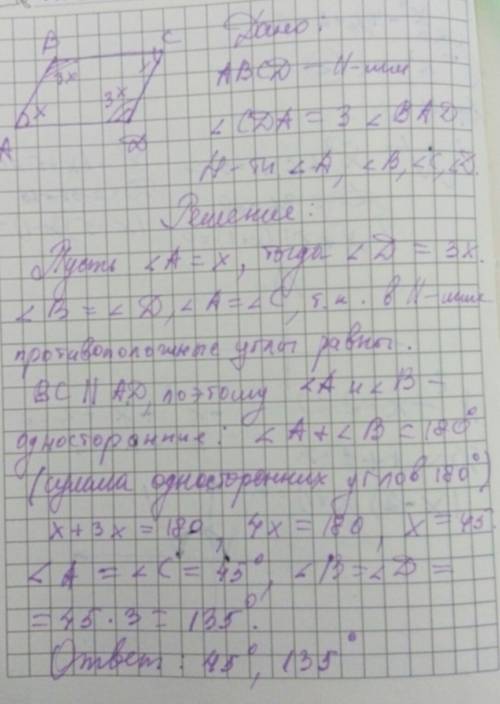 B C
3x x
x 3x
A D
Дано:
ABCD – II-мм
∠CDA = 3 ∠BAD.
Н-ти ∠A, ∠B, ∠C, ∠D.
Решение:
Пусть ∠A = x, тогда ∠D = 3x.
∠B = ∠D, ∠A = ∠C, т.к. в II-мм
противоположные углы равны.
BC || AD, поэтому ∠A и ∠B –
односторонние: ∠A + ∠B = 180°
(сумма односторонних углов 180°)
x + 3x = 180, 4x = 180, x = 45
∠A = ∠C = 45°, ∠B = ∠D =
= 45 · 3 = 135°.
Ответ: 45°, 135°